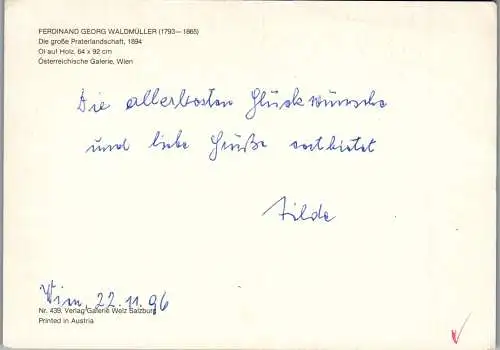 FERDINAND GEORG WALDMÜLLER (1793—1865)
Die große Praterlandschaft, 1894
Öl auf Holz, 64 x 92 cm
Österreichische Galerie, Wien
Die allerbesten Glückwünsche
und liebe Grüße entbietet
Tilde
Wien, 22.11.96
Nr. 439, Verlag Galerie Welz Salzburg
Printed in Austria